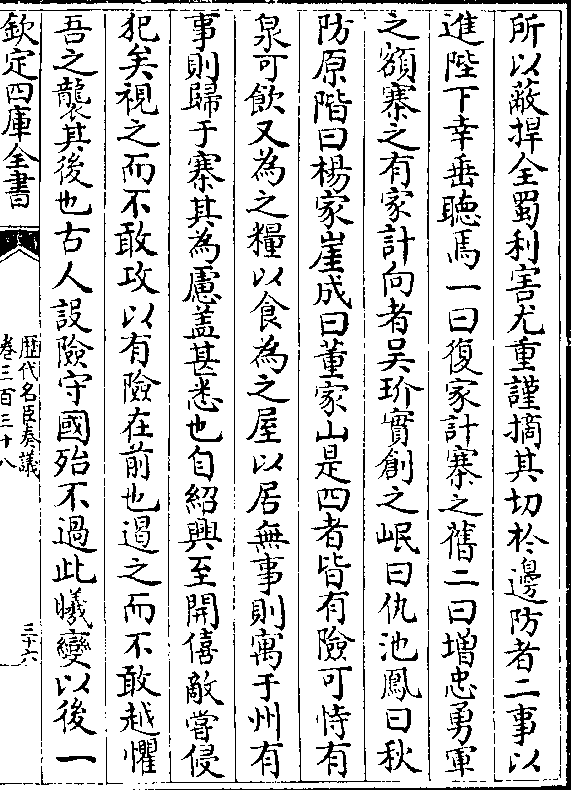 所以蔽捍全蜀利害尤重謹摘其切於邊防者二事以
進陛下幸垂聽焉一曰復家計寨之舊二曰增忠勇軍
之額寨之有家計向者吴玠實創之岷曰仇池鳳曰秋
防原階曰楊家崖成曰董家山是四者皆有險可恃有
泉可飲又為之糧以食為之屋以居無事則寓于州有
事則歸于寨其為慮盖甚悉也自紹興至開僖敵嘗侵
犯矣視之而不敢攻以有險在前也遏之而不敢越懼
吾之襲其後也古人設險守國殆不過此曦變以後一
欽定四庫全書
歴代名臣奏議
卷三百三十八
三十六